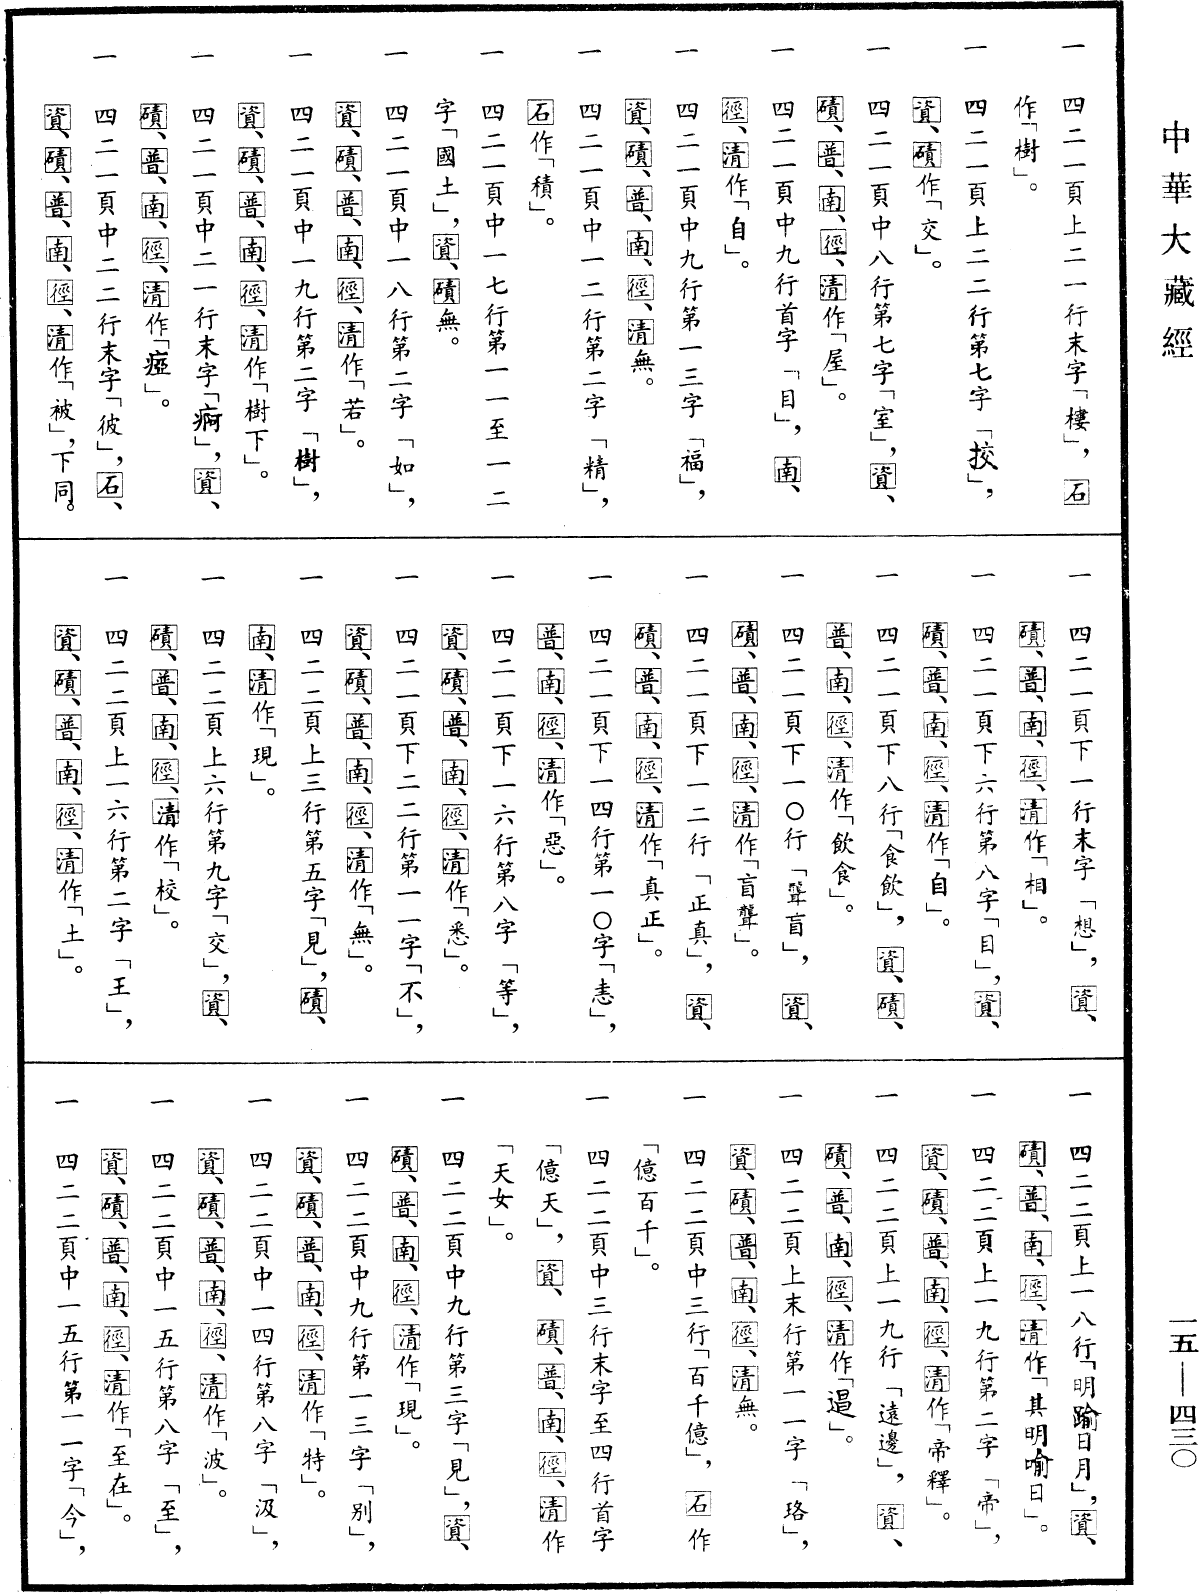 中華大藏經
一五—四三〇
一 四二一頁上二一行末字「樓」，石
作「樹」。
一 四二一頁上二二行第七字「挍」，
資、磧作「交」。
一 四二一頁中八行第七字「室」，資、
磧、普、南、徑、清作「屋」。
一 四二一頁中九行首字「目」，南、
徑、清作「自」。
一 四二一頁中九行第一三字「福」，
資、磧、普、南、徑、清無。
一 四二一頁中一二行第二字「精」，
石作「積」。
一 四二一頁中一七行第一一至一二
字「國土」，資、磧無。
一 四二一頁中一八行第二字「如」，
資、磧、普、南、徑、清作「若」。
一 四二一頁中一九行第二字「樹」，
資、磧、普、南、徑、清作「樹下」。
一 四二一頁中二一行末字「痾」，資、
磧、普、南、徑、清作「瘂」。
一 四二一頁中二二行末字「彼」，石、
資、磧、普、南、徑、清作「被」，下同。
一 四二一頁下一行末字「想」，資、
磧、普、南、徑、清作「相」。
一 四二一頁下六行第八字「目」，資、
磧、普、南、徑、清作「自」。
一 四二一頁下八行「食飲」，資、磧、
普、南、徑、清作「飲食」。
一 四二一頁下一〇行「聾盲」，資、
磧、普、南、徑、清作「盲聾」。
一 四二一頁下一二行「正真」，資、
磧、普、南、徑、清作「真正」。
一 四二一頁下一四行第一〇字「恚」，
普、南、徑、清作「惡」。
一 四二一頁下一六行第八字「等」，
資、磧、普、南、徑、清作「悉」。
一 四二一頁下二二行第一一字「不」，
資、磧、普、南、徑、清作「無」。
一 四二二頁上三行第五字「見」，磧、
南、清作「現」。
一 四二二頁上六行第九字「交」，資、
磧、普、南、徑、清作「校」。
一 四二二頁上一六行第二字「王」，
資、磧、普、南、徑、清作「土」。
一 四二二頁上一八行「明踰日月」，資、
磧、普、南、徑、清作「其明喻日」。
一 四二二頁上一九行第二字「帝」，
資、磧、普、南、徑、清作「帝釋」。
一 四二二頁上一九行「遠邊」，資、
磧、普、南、徑、清作「過」。
一 四二二頁上末行第一一字「珞」，
資、磧、普、南、徑、清無。
一 四二二頁中三行「百千億」，石作
「億百千」。
一 四二二頁中三行末字至四行首字
「億天」，資、磧、普、南、徑、清作
「天女」。
一 四二二頁中九行第三字「見」，資、
磧、普、南、徑、清作「現」。
一 四二二頁中九行第一三字「別」，
資、磧、普、南、徑、清作「特」。
一 四二二頁中一四行第八字「汲」，
資、磧、普、南、徑、清作「波」。
一 四二二頁中一五行第八字「至」，
資、磧、普、南、徑、清作「至在」。
一 四二二頁中一五行第一一字「今」，